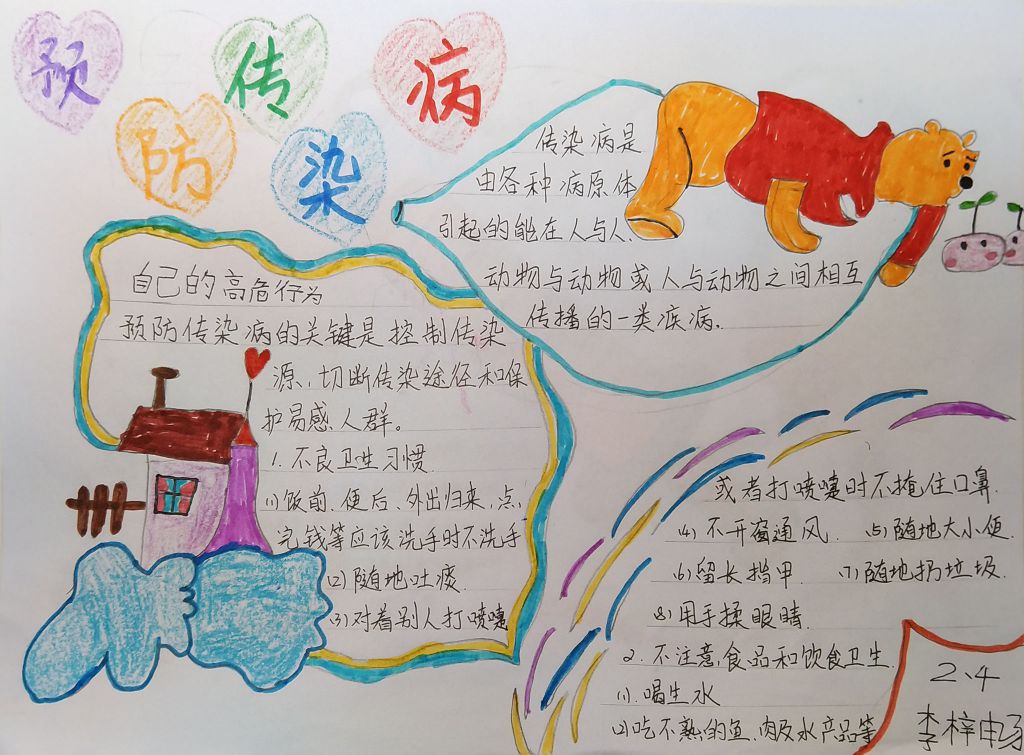 预防传染病
传染病是
由各种病原体
引起的能在人与人、
动物与动物或人与动物之间相互
传播的一类疾病。
自己的高危行为
预防传染病的关键是控制传染
源、切断传染途径和保
护易感人群。
1.不良卫生习惯
(1)饭前、便后、外出归来、点
完钱等应该洗手时不洗手
(2)随地吐痰
(3)对着别人打喷嚏
或者打喷嚏时不掩住口鼻.
(4)不开窗通风. (5)随地大小便.
(6)留长指甲 (7)随地扔垃圾.
(8)用手揉眼睛
2.不注意,食品和饮食卫生
(1).喝生水
(2)吃不熟的鱼、肉及水产品等
2、4
李梓